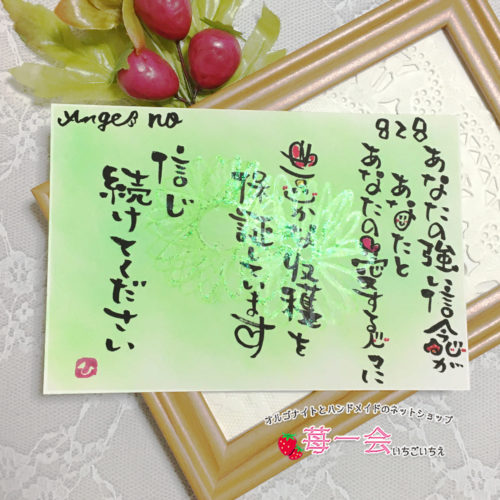 Angel no
828
あなたの強い信念が
あなたと
あなたの愛する人々に
豊かな収穫を
保証しています
信じ
続けてください
オルゴナイトとハンドメイドのネットショップ
苺一会いちごいちえ